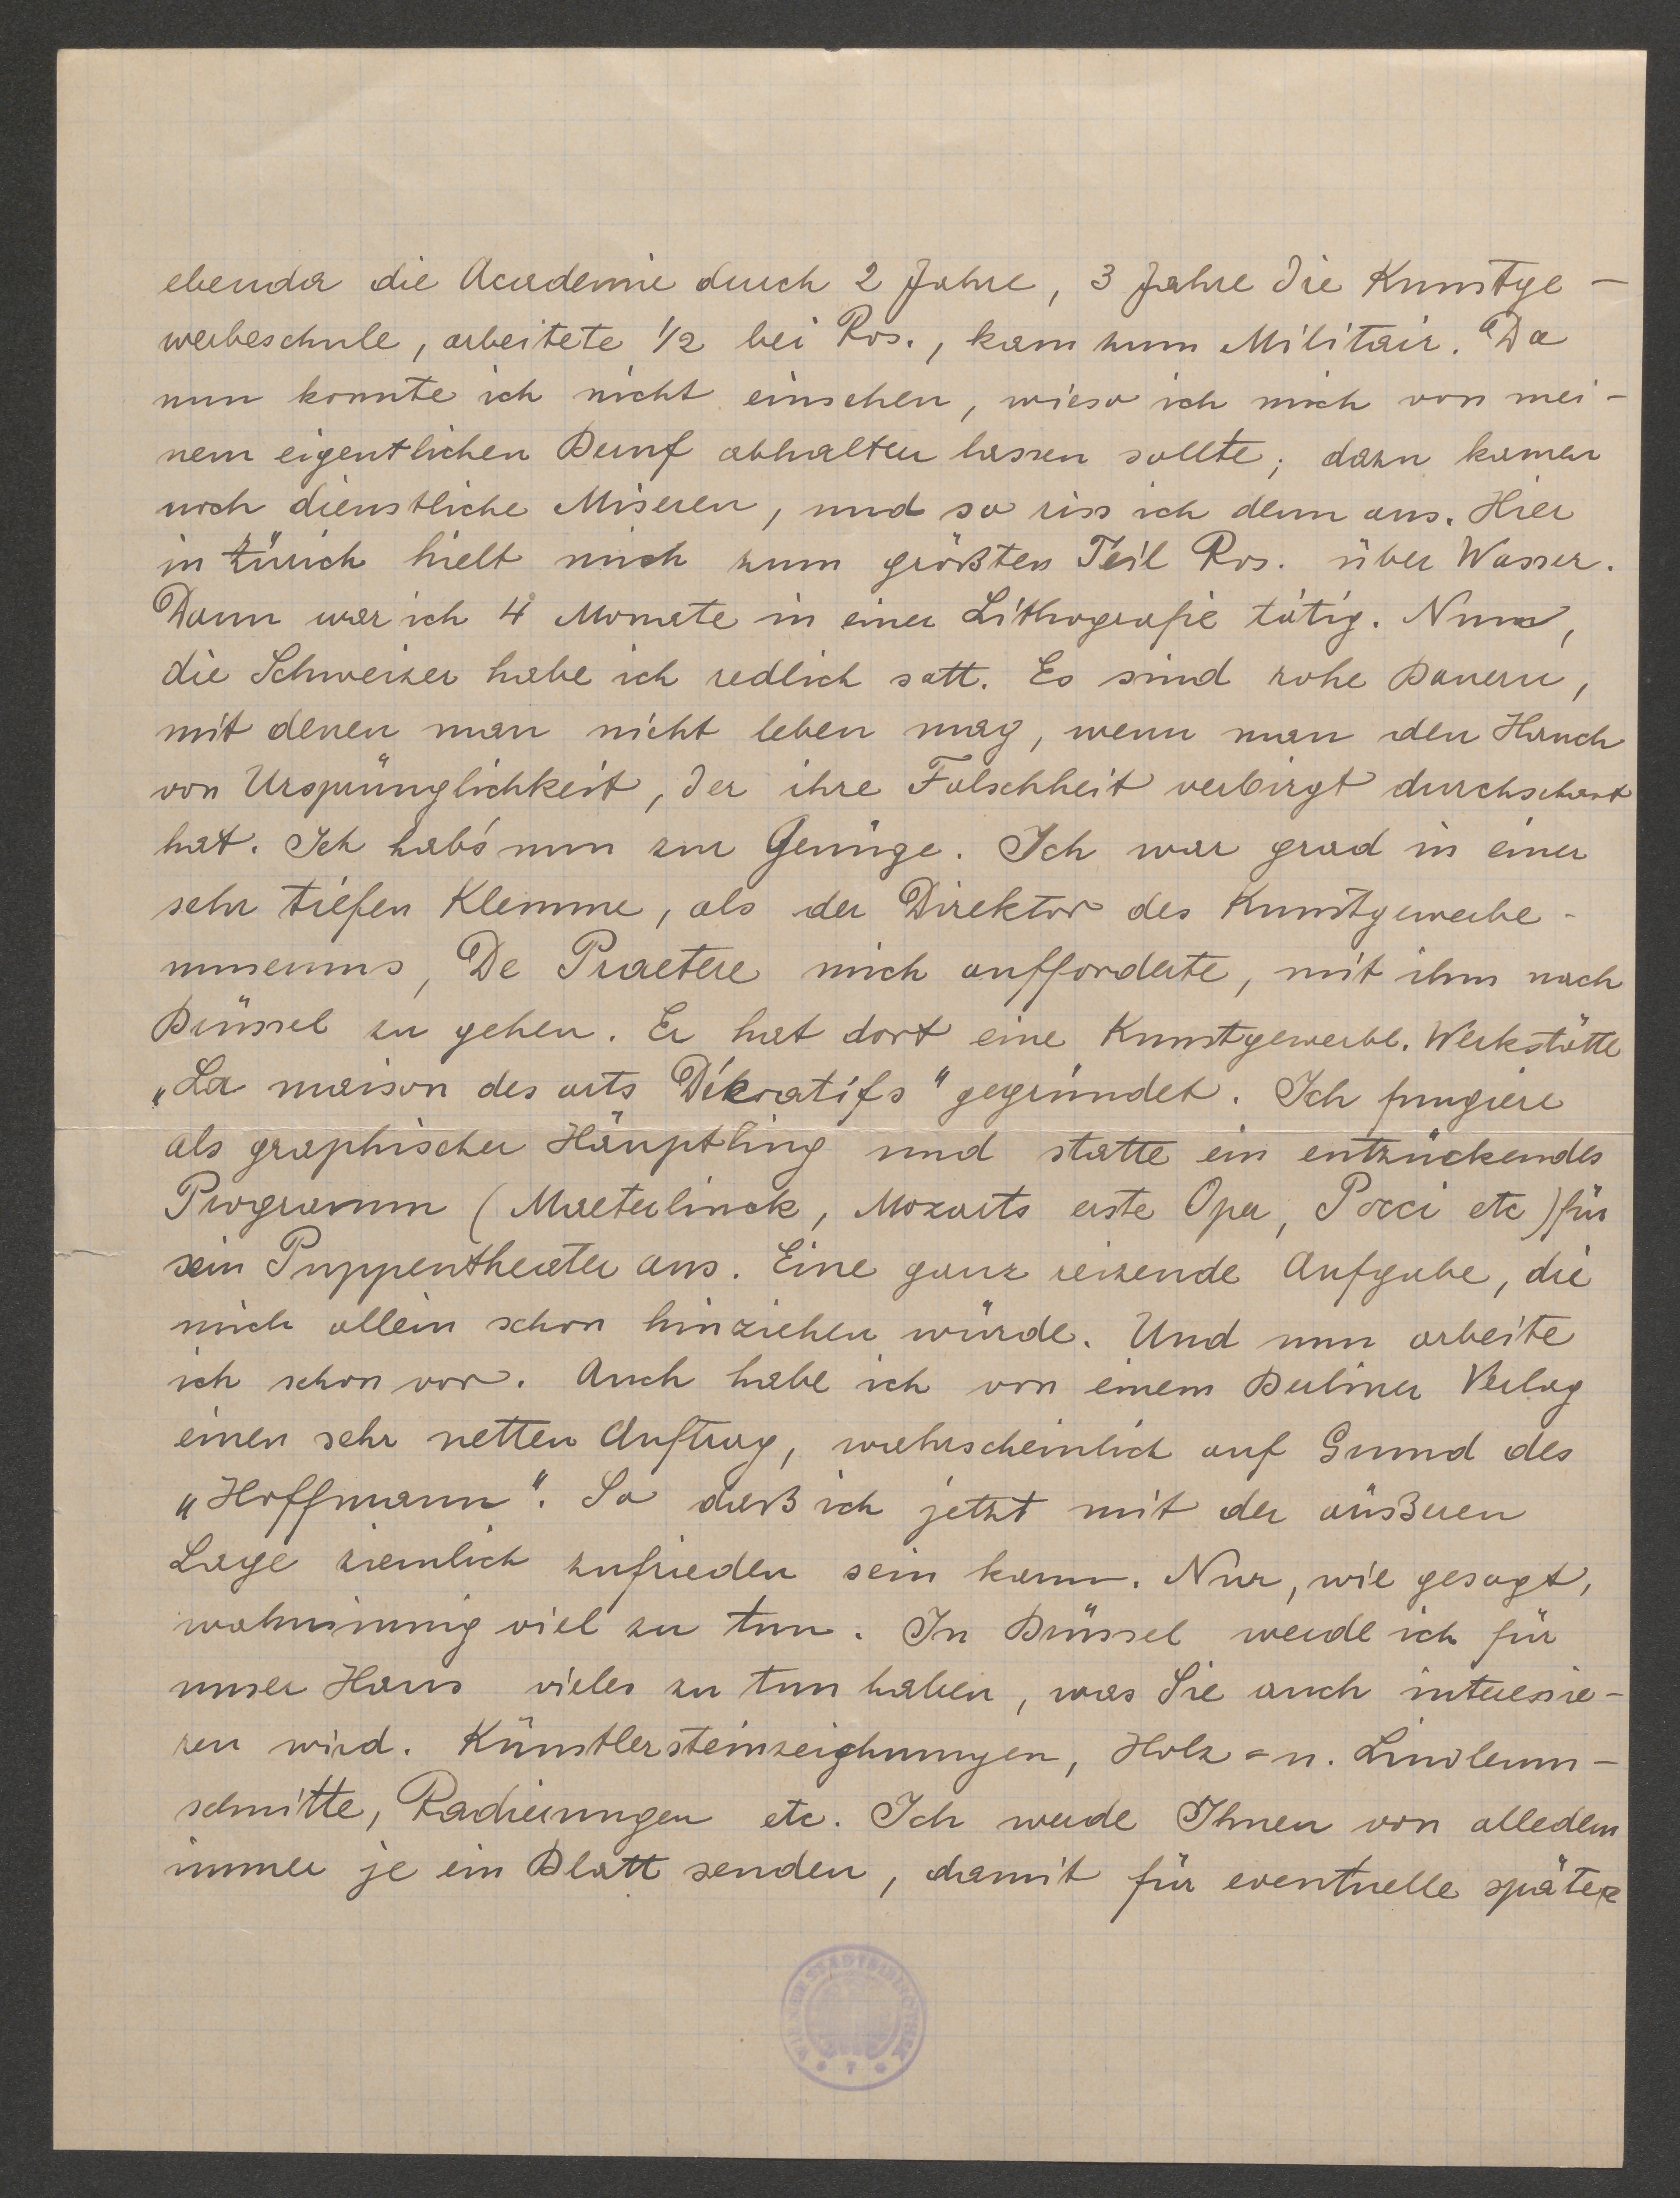 ebenda die Academie durch 2 Jahre, 3 Jahre die Kunstge-
werbeschule, arbeitete 1/2 bei Ros., kam zum Militair. Da
nun konnte ich nicht einsehen, wieso ich mich von mei-
nem eigentlichen Beruf abhalten lassen sollte; dazu kamen
noch dienstliche Miseren, und so riss ich denn aus. Hier
in Zürich hielt mich zum größten Teil Ros. über Wasser.
Dann war ich 4 Monate in einer Lithografie tätig. Nun,
die Schweizer habe ich redlich satt. Es sind rohe Bauern,
mit denen man nicht leben mag, wenn man den Hauch
von Ursprünglichkeit, der ihre Falschheit verbirgt durchschaut
hat. Ich hab's nun zur Genüge. Ich war grad in einer
sehr tiefen Klemme, als der Direktor des Kunstgewerbe-
museums, De Praetere mich aufforderte, mit ihm nach
Brüssel zu gehen. Er hat dort eine Kunstgewerbl. Werkstätte
„La maison des arts Dékoratifs" gegründet. Ich fungiere
als graphischer Häuptling und statte ein entzückendes
Programm (Maeterlinck, Mozarts erste Oper, Pocci etc) für
sein Puppentheater aus. Eine ganz reizende Aufgabe, die
mich allein schon hinziehen würde. Und nun arbeite
ich schon vor. Auch habe ich von einem Berliner Verlag
einen sehr netten Auftrag, wahrscheinlich auf Grund des
„Hoffmann". So daß ich jetzt mit der äußeren
Lage ziemlich zufrieden sein kann. Nur, wie gesagt,
wahnsinnig viel zu tun. In Brüssel werde ich für
unser Haus vieles zu tun haben, was Sie auch interessie-
ren wird. Künstlersteinzeichnungen, Holz= u. Linoleum-
schnitte, Radierungen etc. Ich werde Ihnen von alledem
immer je ein Blatt senden, damit für eventuelle später